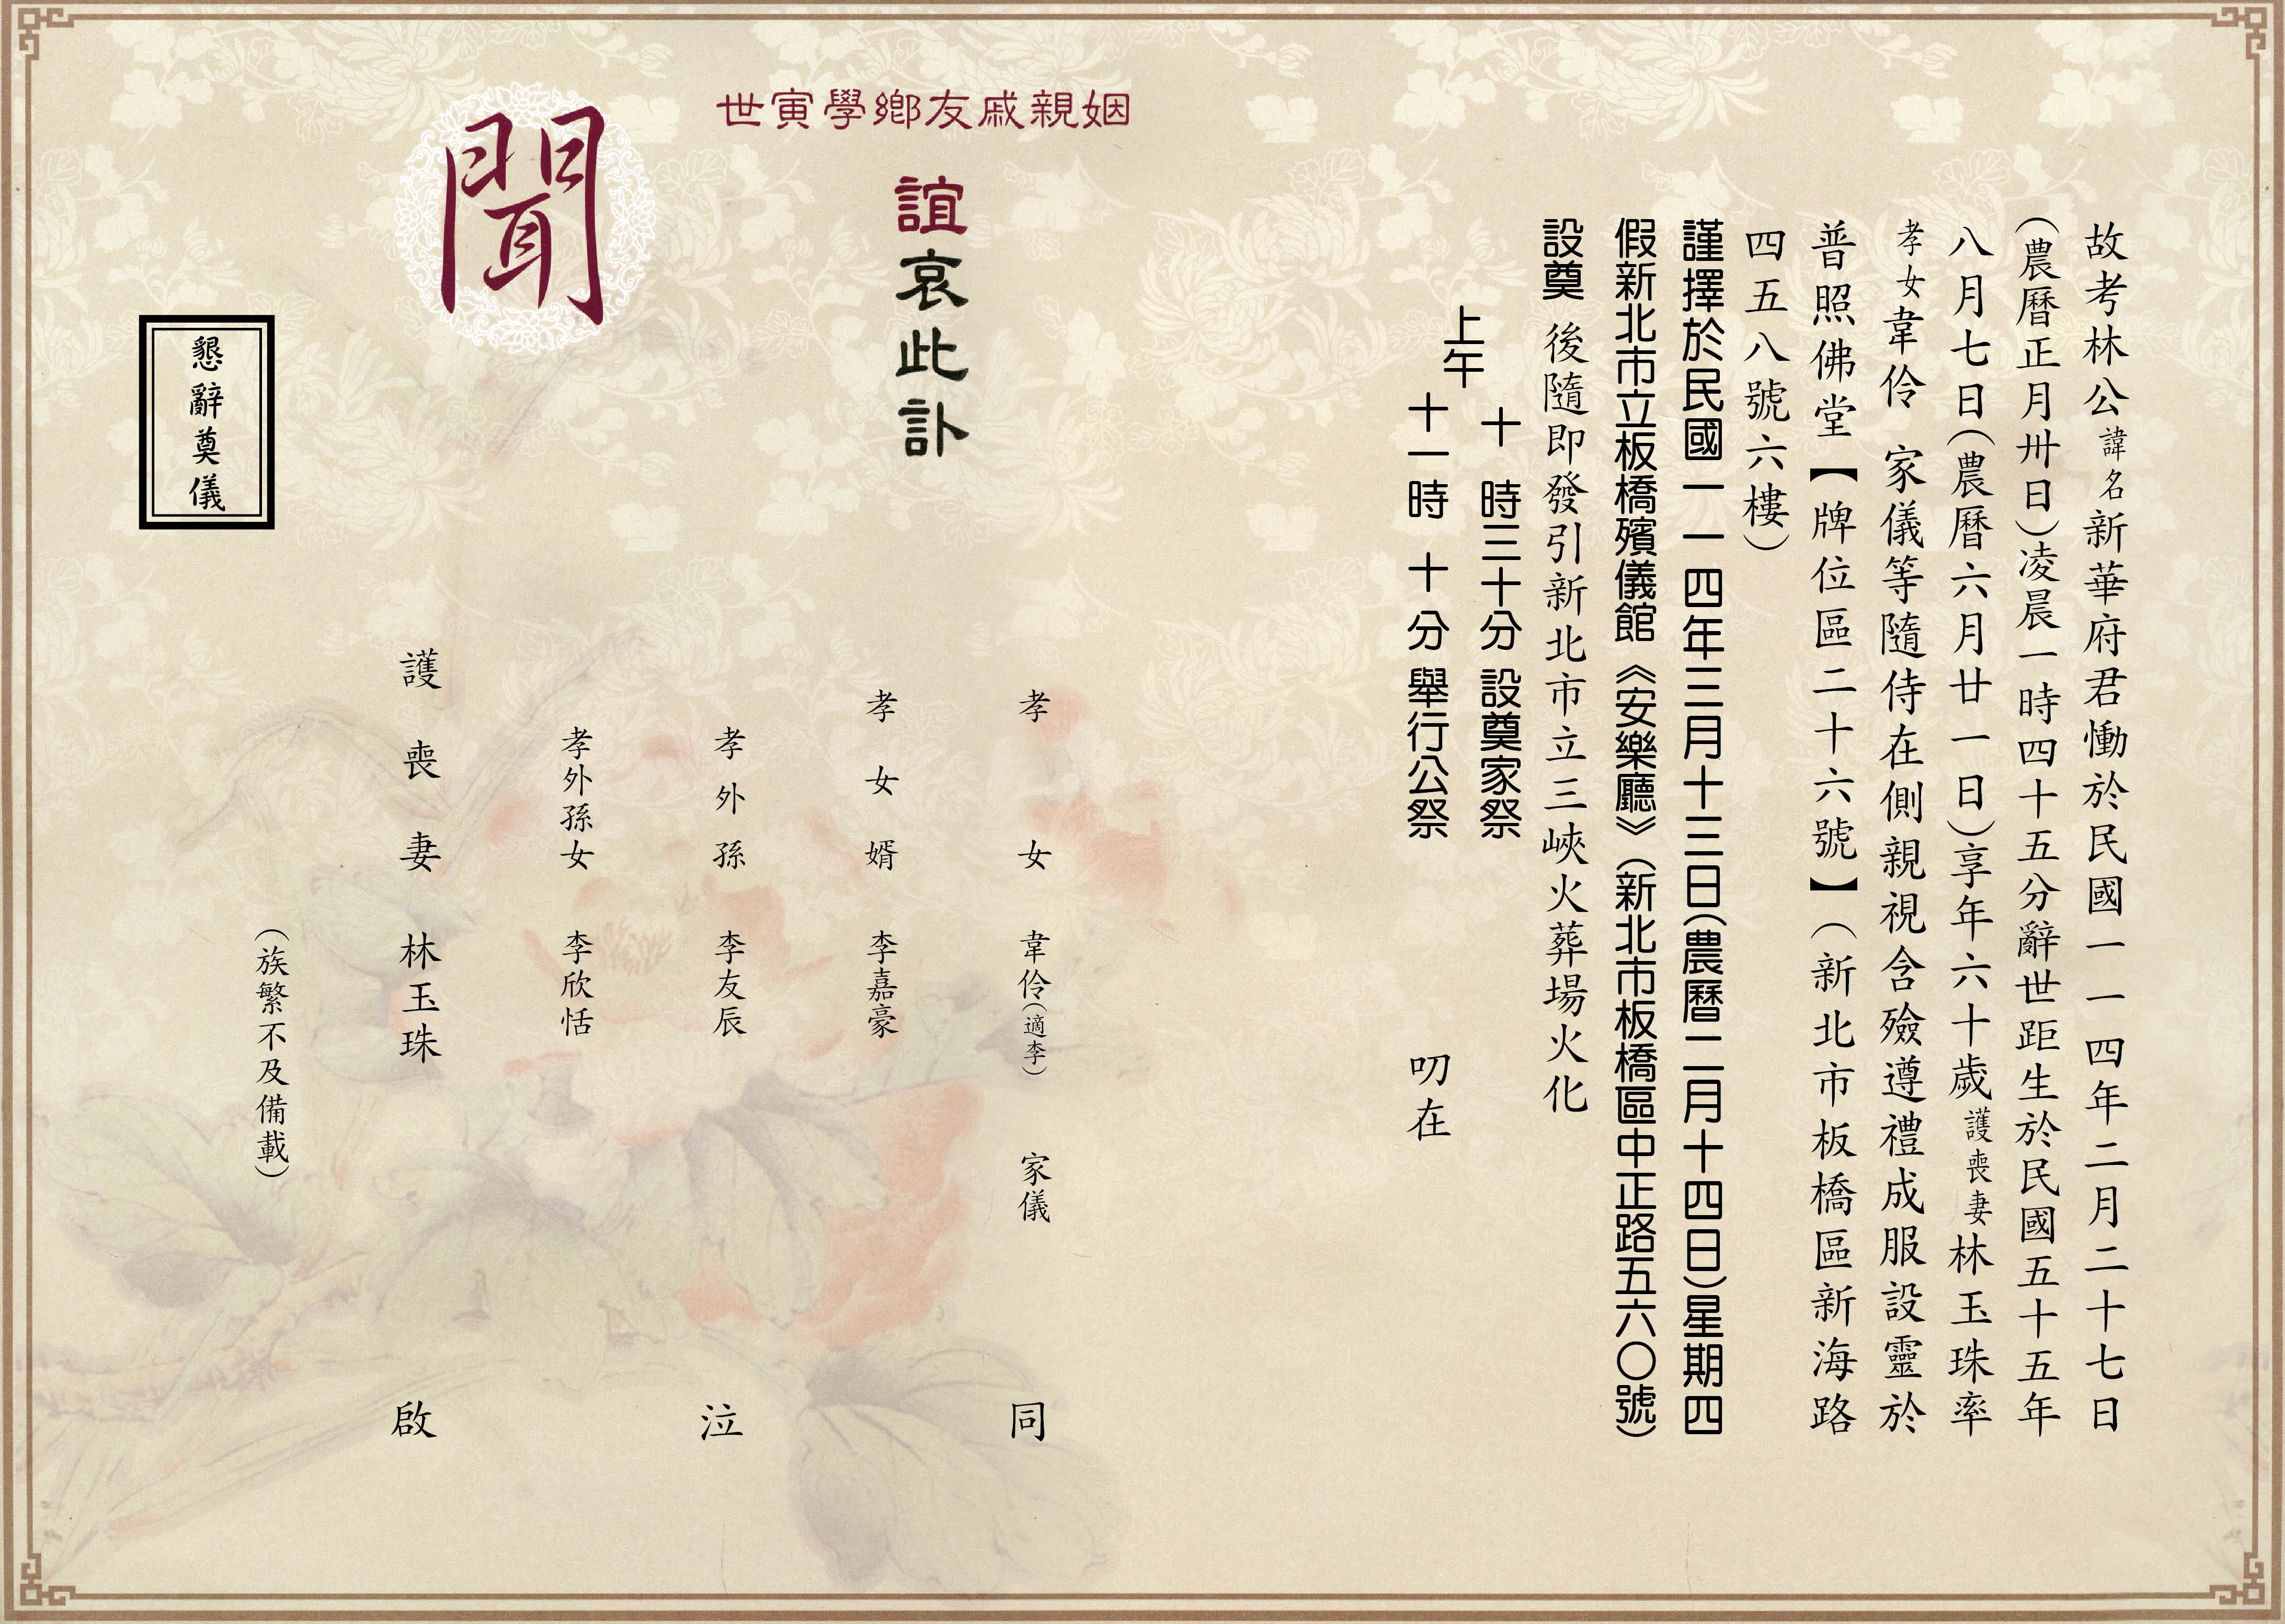 故考林公諱名新華府君慟於民國一一四年二月二十七日
(農曆正月卅日)凌晨一時四十五分辭世距生於民國五十五年
八月七日(農曆六月廿一日)享年六十歲護喪妻林玉珠率
孝女韋伶 家儀等隨侍在側親視含殮遵禮成服設靈於
普照佛堂【牌位區二十六號】(新北市板橋區新海路
四五八號六樓)
謹擇於民國一一四年三月十三日(農曆二月十四日)星期四
假新北市立板橋殯儀館《安樂廳》(新北市板橋區中正路五六〇號)
設奠 後隨即發引新北市立三峽火葬場火化
上午
十 時三十分 設奠家祭
十一時 十 分 舉行公祭
叨在
姻親戚友鄉學寅世
誼哀此訃
聞
孝女 韋伶(適李) 家儀
孝女婿 李嘉豪
孝外孫 李友辰
孝外孫女 李欣恬
護喪妻 林玉珠
(族繁不及備載)
同
泣
啟
懇辭奠儀